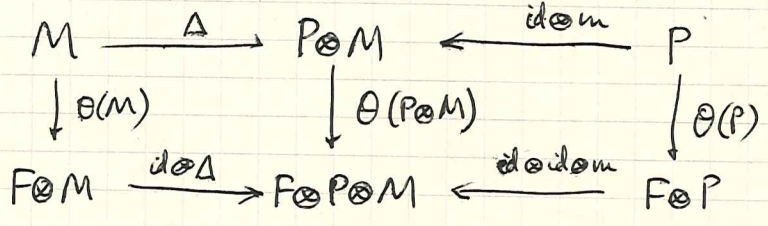 M Δ P⊗M id⊗m P
θ(M) θ(P⊗M) θ(P)
F⊗M id⊗Δ F⊗P⊗M id⊗id⊗m F⊗P